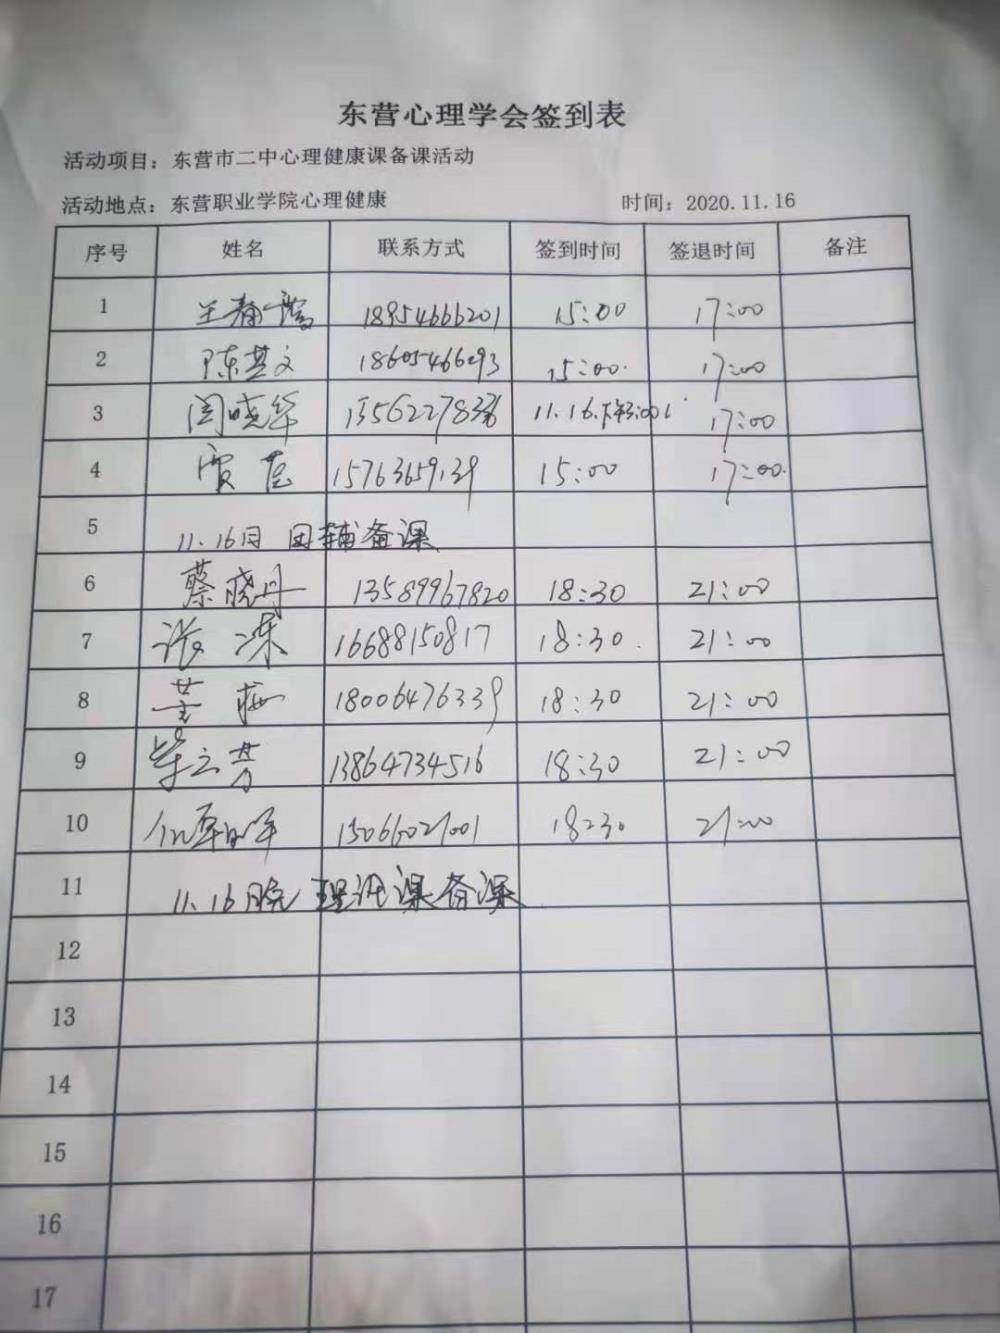 东营心理学会签到表
活动项目：东营市二中心理健康课备课活动
活动地点：东营职业学院心理健康 时间：2020.11.16
序号 姓名 联系方式 签到时间 签退时间 备注
1 王静 18954666201 15:00 17:00
2 陈其文 18605466093 15:00. 17:00
3 闫晓华 11.16.下午3:00 17:00
4 贾 15763659139 15:00 17:00.
5 11.16日 团辅备课
6 蔡晓丹 13589967820 18:30 21:00
7 张 16688150817 18:30. 21:00
8 董梅 18006476339 18:30 21:00
9 芳 13864734516 18:30 21:00
10 18:30 21:00
11 11.16晚 理论课备课
12
13
14
15
16
17